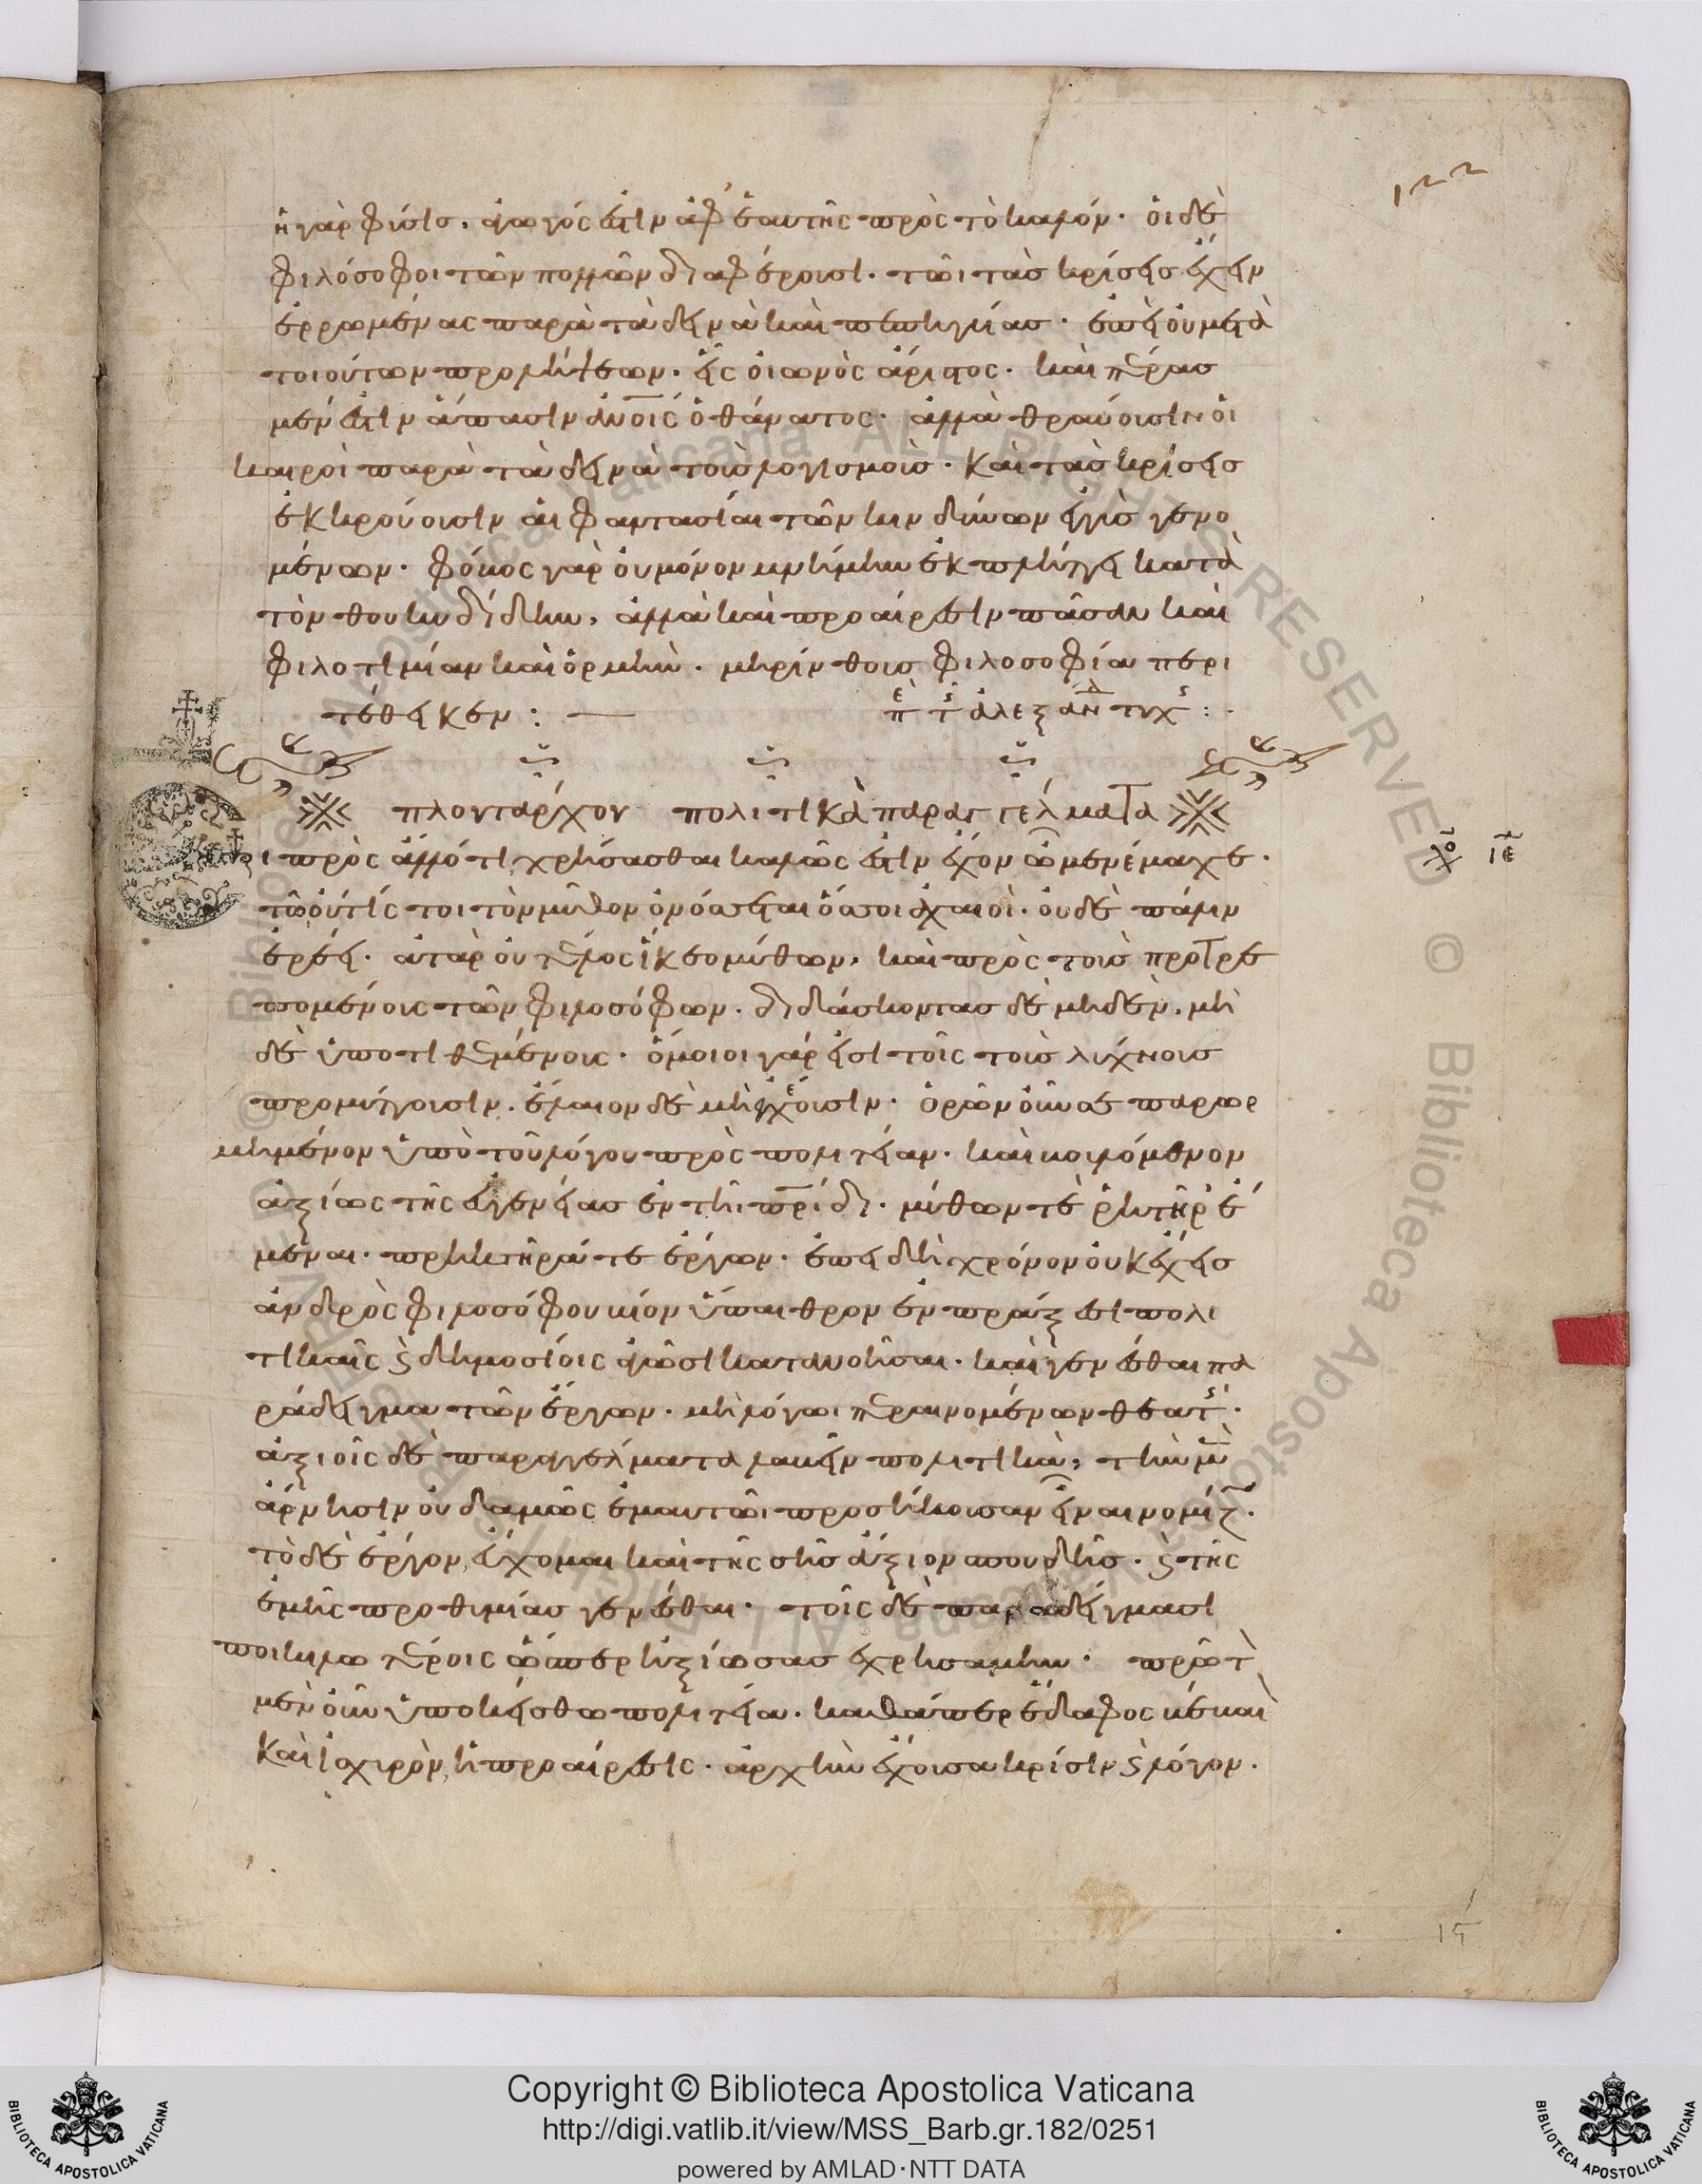 122
ἡ γὰρ φύσις, ἀγωγός ἐστιν ἀφ' ἑαυτῆς πρὸς τὸ καλόν· οἱ δὲ
φιλόσοφοι τῶν πολλῶν διαφέρουσι· τῶι τὰς κρίσεις ἔχειν
ἐρρωμένας παρὰ τὰ δεινὰ καὶ πεπηγυίας· ἐπεὶ οὐ μετὰ
τοιούτων προλήψεων· εἷς οἰωνὸς ἄριστος· καὶ πέρας
μέν ἐστιν ἅπασιν ἀνοις ὁ θάνατος· ἀλλὰ θραύουσιν οἱ
καιροὶ παρὰ τὰ δεινὰ τοὺς λογισμούς· καὶ τὰς κρίσεις
ἐκκρούουσιν αἱ φαντασίαι τῶν κινδύνων ἐγγὺς γενο
μένων· φόβος γὰρ οὐ μόνον μνήμην ἐκπλήττει κατὰ
τὸν θουκυδίδην, ἀλλὰ καὶ προαίρεσιν πᾶσαν καὶ
φιλοτιμίαν καὶ ὁρμήν· μηρίνθους φιλοσοφία περι
τέθεικεν : — ἐπὶ τ ἀλεξάνδ τυχ : ·
πλουτάρχου πολιτικὰ παραγγέλματα
ι πρὸς ἄλλό τι χρήσασθαι καλῶς ἐστιν ἔχον ὦ μενέμαχε·
τῶ οὔτίς τοι τὸν μῦθον ὀνόσσεται ὅσσοι ἀχαιοί· οὐδὲ πάλιν
ἐρέει· ἀτὰρ οὐ τέλος ἵκεο μύθων, καὶ πρὸς τοὺς προτρε
πομένους τῶν φιλοσόφων· διδάσκοντας δὲ μηδὲν, μη
δὲ ὑποτιθεμένους· ὅμοιοι γάρ εἰσι τοῖς τοὺς λύχνους
προμύττουσιν· ἔλαιον δὲ μὴ ἐγχέουσιν· ὁρῶν οὖν σε παρωρ
μημένον ὑπὸ τοῦ λόγου πρὸς πολιτείαν· καὶ βουλόμενον
ἀξίως τῆς εὐγενείας ἐν τῆι πρίδι· μύθων τὲ ῥητῆρ' ἔ
μεναι· πρηκτῆρά τε ἔργων· ἐπειδὴ χρόνον οὐκ ἔχεις
ἀνδρὸς φιλοσόφου βίον ὕπαιθρον ἐν πράξεσι πολι
τικαῖς καὶ δημοσίοις ἀγῶσι κατανοῆσαι· καὶ γενέσθαι πα
ράδειγμα τῶν ἔργων· μὴ λόγωι περαινομένων θεατ·
ἀξιοῖς δὲ παραγγέλματα λαβεῖν πολιτικὰ, τὴν μὲν
ἄρνησιν οὐδαμῶς ἐμαυτῶι προσήκουσαν εἶναι νομίζ·
τὸ δὲ ἔργον, εὔχομαι καὶ τῆς σῆς ἄξιον σπουδῆς· καὶ τῆς
ἐμῆς προθυμίας γενέσθαι· τοῖς δὲ παραδείγμασι
ποικιλωτέροις ὥσπερ ἠξίωσας ἐχρησάμην· πρῶτ
μὲν οὖν ὑποκείσθω πολιτεία· καθάπερ ἔδαφος βέβαι
καὶ ἰσχυρὸν, ἡ προαίρεσις· ἀρχὴν ἔχουσα κρίσιν καὶ λόγον·
ιε
15
Copyright © Biblioteca Apostolica Vaticana
http://digi.vatlib.it/view/MSS_Barb.gr.182/0251
powered by AMLAD·NTT DATA